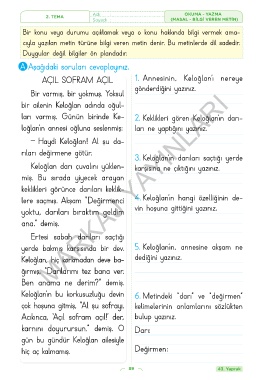 2. TEMA
Adı:
Soyadı:
OKUMA - YAZMA
(MASAL - BİLGİ VEREN METİN)
Bir konu veya durumu açıklamak veya o konu hakkında bilgi vermek ama-
cıyla yazılan metin türüne bilgi veren metin denir. Bu metinlerde dil sadedir.
Duygular değil bilgiler ön plandadır.
A Aşağıdaki soruları cevaplayınız.
AÇIL SOFRAM AÇIL
Bir varmış, bir yokmuş. Yoksul
bir ailenin Keloğlan adında oğul-
ları varmış. Günün birinde Ke-
loğlan'ın annesi oğluna seslenmiş:
— Haydi Keloğlan! Al şu da-
rıları değirmene götür.
Keloğlan darı çuvalını yüklen-
miş. Bu sırada yiyecek arayan
keklikleri görünce darıları keklik-
lere saçmış. Akşam "Değirmenci
yoktu, darıları bıraktım geldim
ana." demiş.
Ertesi sabah darıları saçtığı
yerde bakmış karşısında bir dev.
Keloğlan, hiç korkmadan deve ba-
ğırmış: "Darılarımı tez bana ver.
Ben anama ne derim?" demiş.
Keloğlan'ın bu korkusuzluğu devin
çok hoşuna gitmiş, "Al şu sofrayı.
Acıkınca, 'Açıl sofram açıl!' der,
karnını doyurursun." demiş. O
gün bu gündür Keloğlan ailesiyle
hiç aç kalmamış.
1. Annesinin, Keloğlan'ı nereye
gönderdiğini yazınız.
2. Keklikleri gören Keloğlan'ın darı-
ları ne yaptığını yazınız.
3. Keloğlan'ın darıları saçtığı yerde
karşısına ne çıktığını yazınız.
4. Keloğlan'ın hangi özelliğinin de-
vin hoşuna gittiğini yazınız.
5. Keloğlan'ın, annesine akşam ne
dediğini yazınız.
6. Metindeki "darı" ve "değirmen"
kelimelerinin anlamlarını sözlükten
bulup yazınız.
Darı:
Değirmen:
89
45. Yaprak
YAYINLERİ